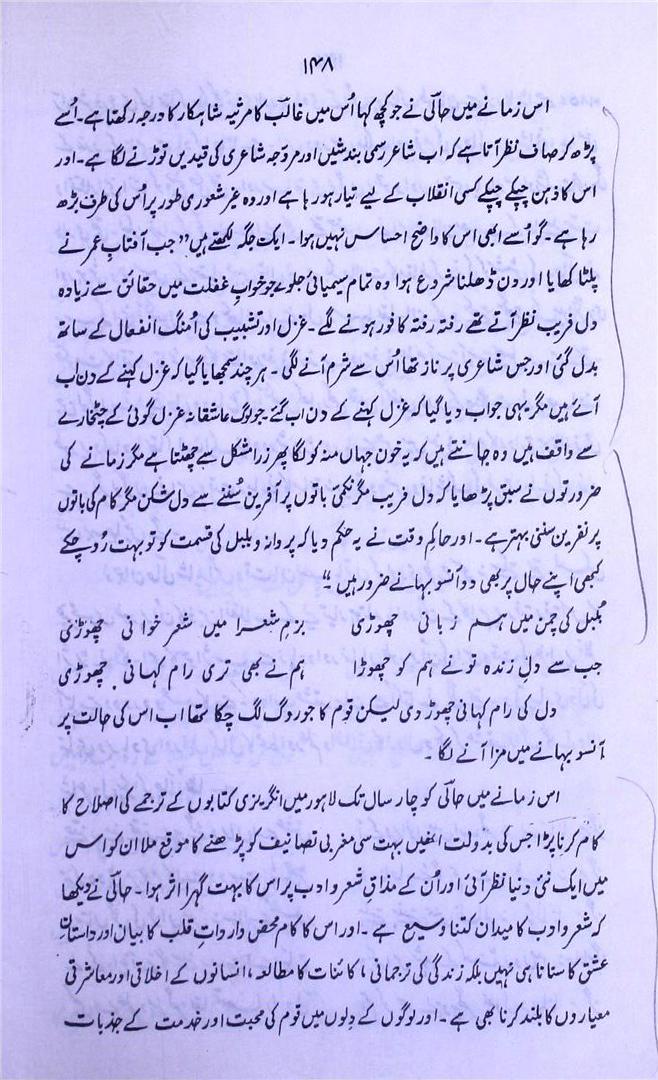 ۱۴۸
اس زمانے میں حالیؔ نے جو کچھ کہا اُس میں غالبؔ کا مرثیہ شاہکار کا درجہ رکھتا ہے۔ اُسے
پڑھ کر صاف نظر آتا ہے کہ اب شاعر رسمی بندشیں اور مروّجہ شاعری کی قیدیں توڑنے لگا ہے۔ اور
اس کا ذہن چپکے چپکے کسی انقلاب کے لیے تیار ہو رہا ہے اور وہ غیر شعوری طور پر اُس کی طرف بڑھ
رہا ہے۔ گو اُسے ابھی اس کا واضح احساس نہیں ہوا۔ ایک جگہ لکھتے ہیں ”جب آفتابِ عمر نے
پلٹا کھایا اور دن ڈھلنا شروع ہوا وہ تمام سیمیائی جلوے جو خوابِ غفلت میں حقائق سے زیادہ
دل فریب نظر آتے تھے رفتہ رفتہ کافور ہونے لگے۔ غزل اور تشبیب کی اُمنگ انفعال کے ساتھ
بدل گئی اور جس شاعری پر ناز تھا اُس سے شرم آنے لگی۔ ہر چند سمجھایا گیا کہ غزل کہنے کے دن اب
آئے ہیں مگر یہی جواب دیا گیا کہ غزل کہنے کے دن اب گئے جو لوگ عاشقانہ غزل گوئی کے چٹخارے
سے واقف ہیں وہ جانتے ہیں کہ یہ خون جہاں منہ کو لگا پھر ذرا مشکل سے چھٹتا ہے مگر زمانے کی
ضرورتوں نے سبق پڑھایا کہ دل فریب مگر نکمّی باتوں پر آفرین سُننے سے دل شکن مگر کام کی باتوں
پر نفرین سننی بہتر ہے۔ اور حاکمِ وقت نے یہ حکم دیا کہ پروانہ و بلبل کی قسمت کو تو بہت رُو چکے
کبھی اپنے حال پر بھی دو آنسو بہانے ضرور ہیں۔“
بُلبل کی چمن میں ہم زبانی چھوڑی بزمِ شعرا میں شعر خوانی چھوڑی
جب سے دلِ زندہ تو نے ہم کو چھوڑا ہم نے بھی تری رام کہانی چھوڑی
دل کی رام کہانی چھوڑ دی لیکن قوم کا جو روگ لگ چکا تھا اب اس کی حالت پر
آنسو بہانے میں مزا آنے لگا۔
اس زمانے میں حالیؔ کو چار سال تک لاہور میں انگریزی کتابوں کے ترجمے کی اصلاح کا
کام کرنا پڑا جس کی بدولت انھیں بہت سی مغربی تصانیف کو پڑھنے کا موقع ملا ان کو اس
میں ایک نئی دنیا نظر آئی اور اُن کے مذاقِ شعر و ادب پر اس کا بہت گہرا اثر ہوا۔ حالیؔ نے دیکھا
کہ شعر و ادب کا میدان کتنا وسیع ہے۔ اور اس کا کام محض وارداتِ قلب کا بیان اور داستانِ
عشق کا سنانا ہی نہیں بلکہ زندگی کی ترجمانی، کائنات کا مطالعہ، انسانوں کے اخلاقی اور معاشرتی
معیاروں کا بلند کرنا بھی ہے۔ اور لوگوں کے دِلوں میں قوم کی محبت اور خدمت کے جذبات